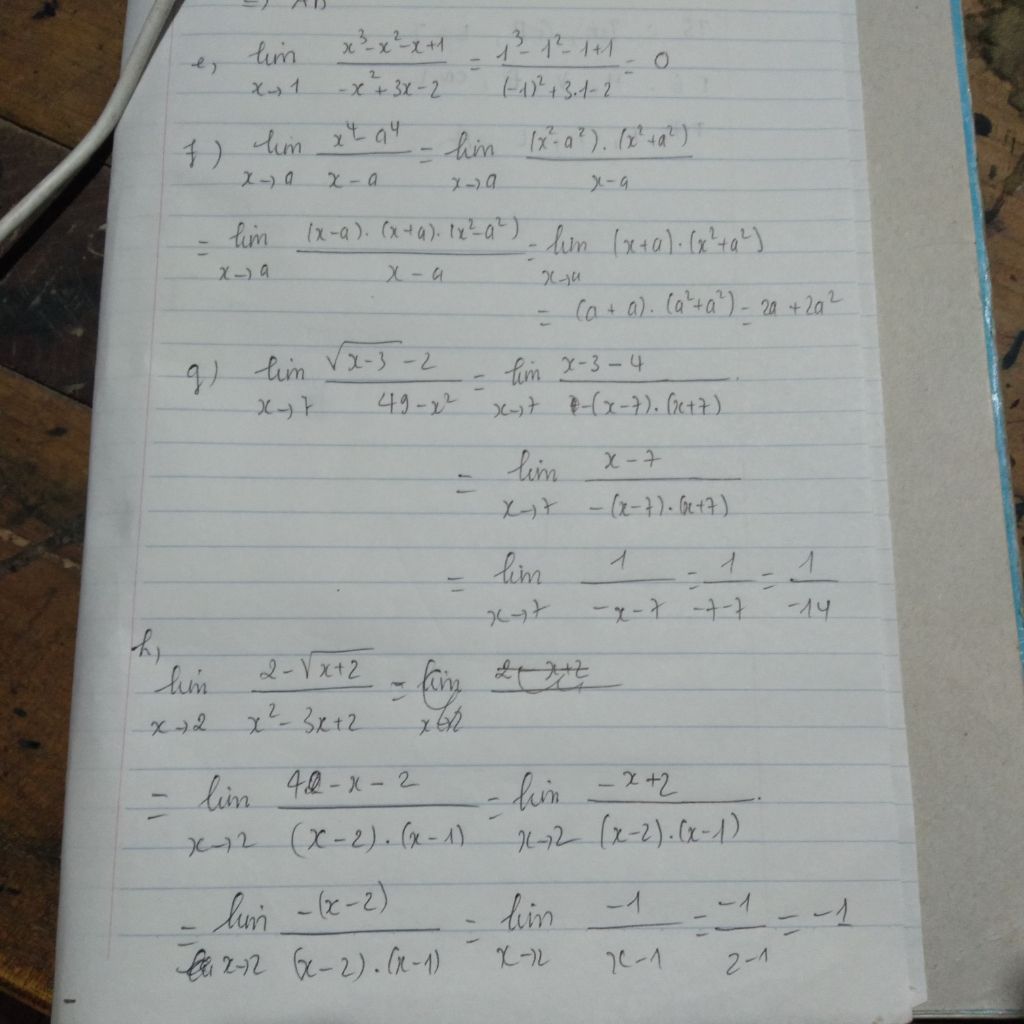 e, lim x→1 (x³-x²-x+1)/(-x²+3x-2) = (1³-1²-1+1)/((-1)²+3.1-2) = 0
f) lim x→a (x⁴-a⁴)/(x-a) = lim x→a ((x²-a²).(x²+a²))/(x-a)
= lim x→a ((x-a).(x+a).(x²-a²))/(x-a) = lim x→a (x+a).(x²+a²)
= (a+a).(a²+a²) = 2a+2a²
g) lim x→7 (√(x-3)-2)/(49-x²) = lim x→7 (x-3-4)/(-(x-7).(x+7))
= lim x→7 (x-7)/(-(x-7).(x+7))
= lim x→7 1/(-x-7) = 1/(-7-7) = 1/(-14)
h,
lim x→2 (2-√(x+2))/(x²-3x+2) = lim x→2
= lim x→2 (4-x-2)/((x-2).(x-1)) = lim x→2 (-x+2)/((x-2).(x-1))
= lim x→2 (-(x-2))/((x-2).(x-1)) = lim x→2 (-1)/(x-1) = (-1)/(2-1) = -1